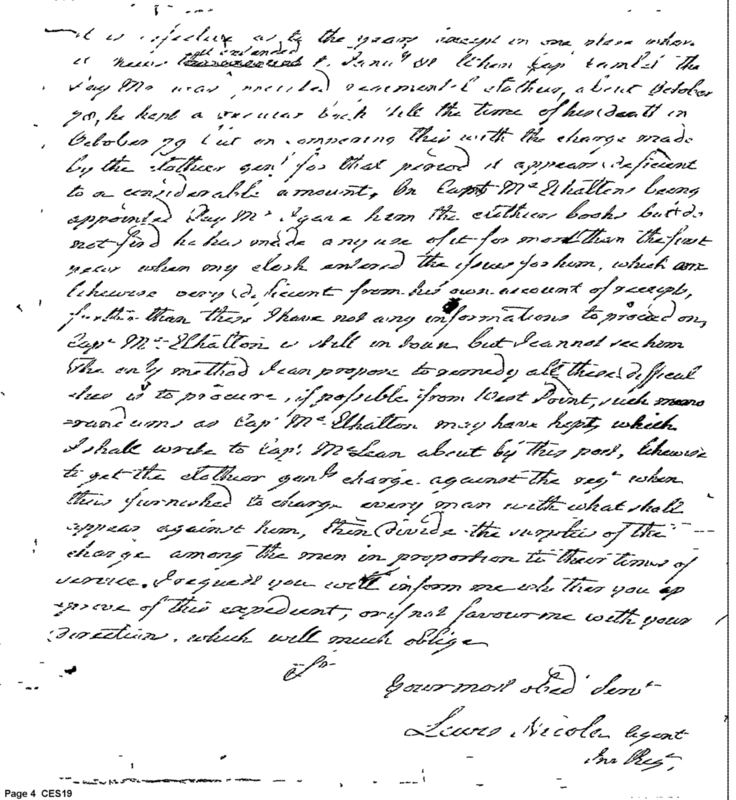 it is defective as to the years except in one place where
it never all extended Janu.y 81 When Cap
Pay Mr was regimental clothier, about October
78, he kept a regular book till the time of his death in
October 79 but on compairing this with the charge made
by the clothier genl. for that period it appears deficient
to a considerable amount. On Capt. Mc Elhattons being
appointed Pay Mr. I gave him the clothiers books but do
not find he has made any use of it for more than the first
year when my clerk entered the issues for him, which are
likewise very deficient from his own account of receipts,
further than these I have not any informations to proceed on,
Capt. Mc. Elhatton is still in town but I cannot see him
The only method I can propose to remedy all these difficul
=ties is to procure, if possible from West Point, such memo
=randums as Capt. Mc. Elhatton may have kept, which
I shall write to Capt. McLean about by this post, likewise
to get the clothier genls. charge against the regt. when
this furnished to charge every man with what shall
appear against him, then divide the surplus of the
charge among the men in proportion to their times of
service. I request you will inform me whether you ap
=prove of this expedient, or if not favour me with your
direction. which will much oblige
Sr.
Your most obed. Servt.
Lewis Nicola Agent
Inv Regt.
Page 4 CES19